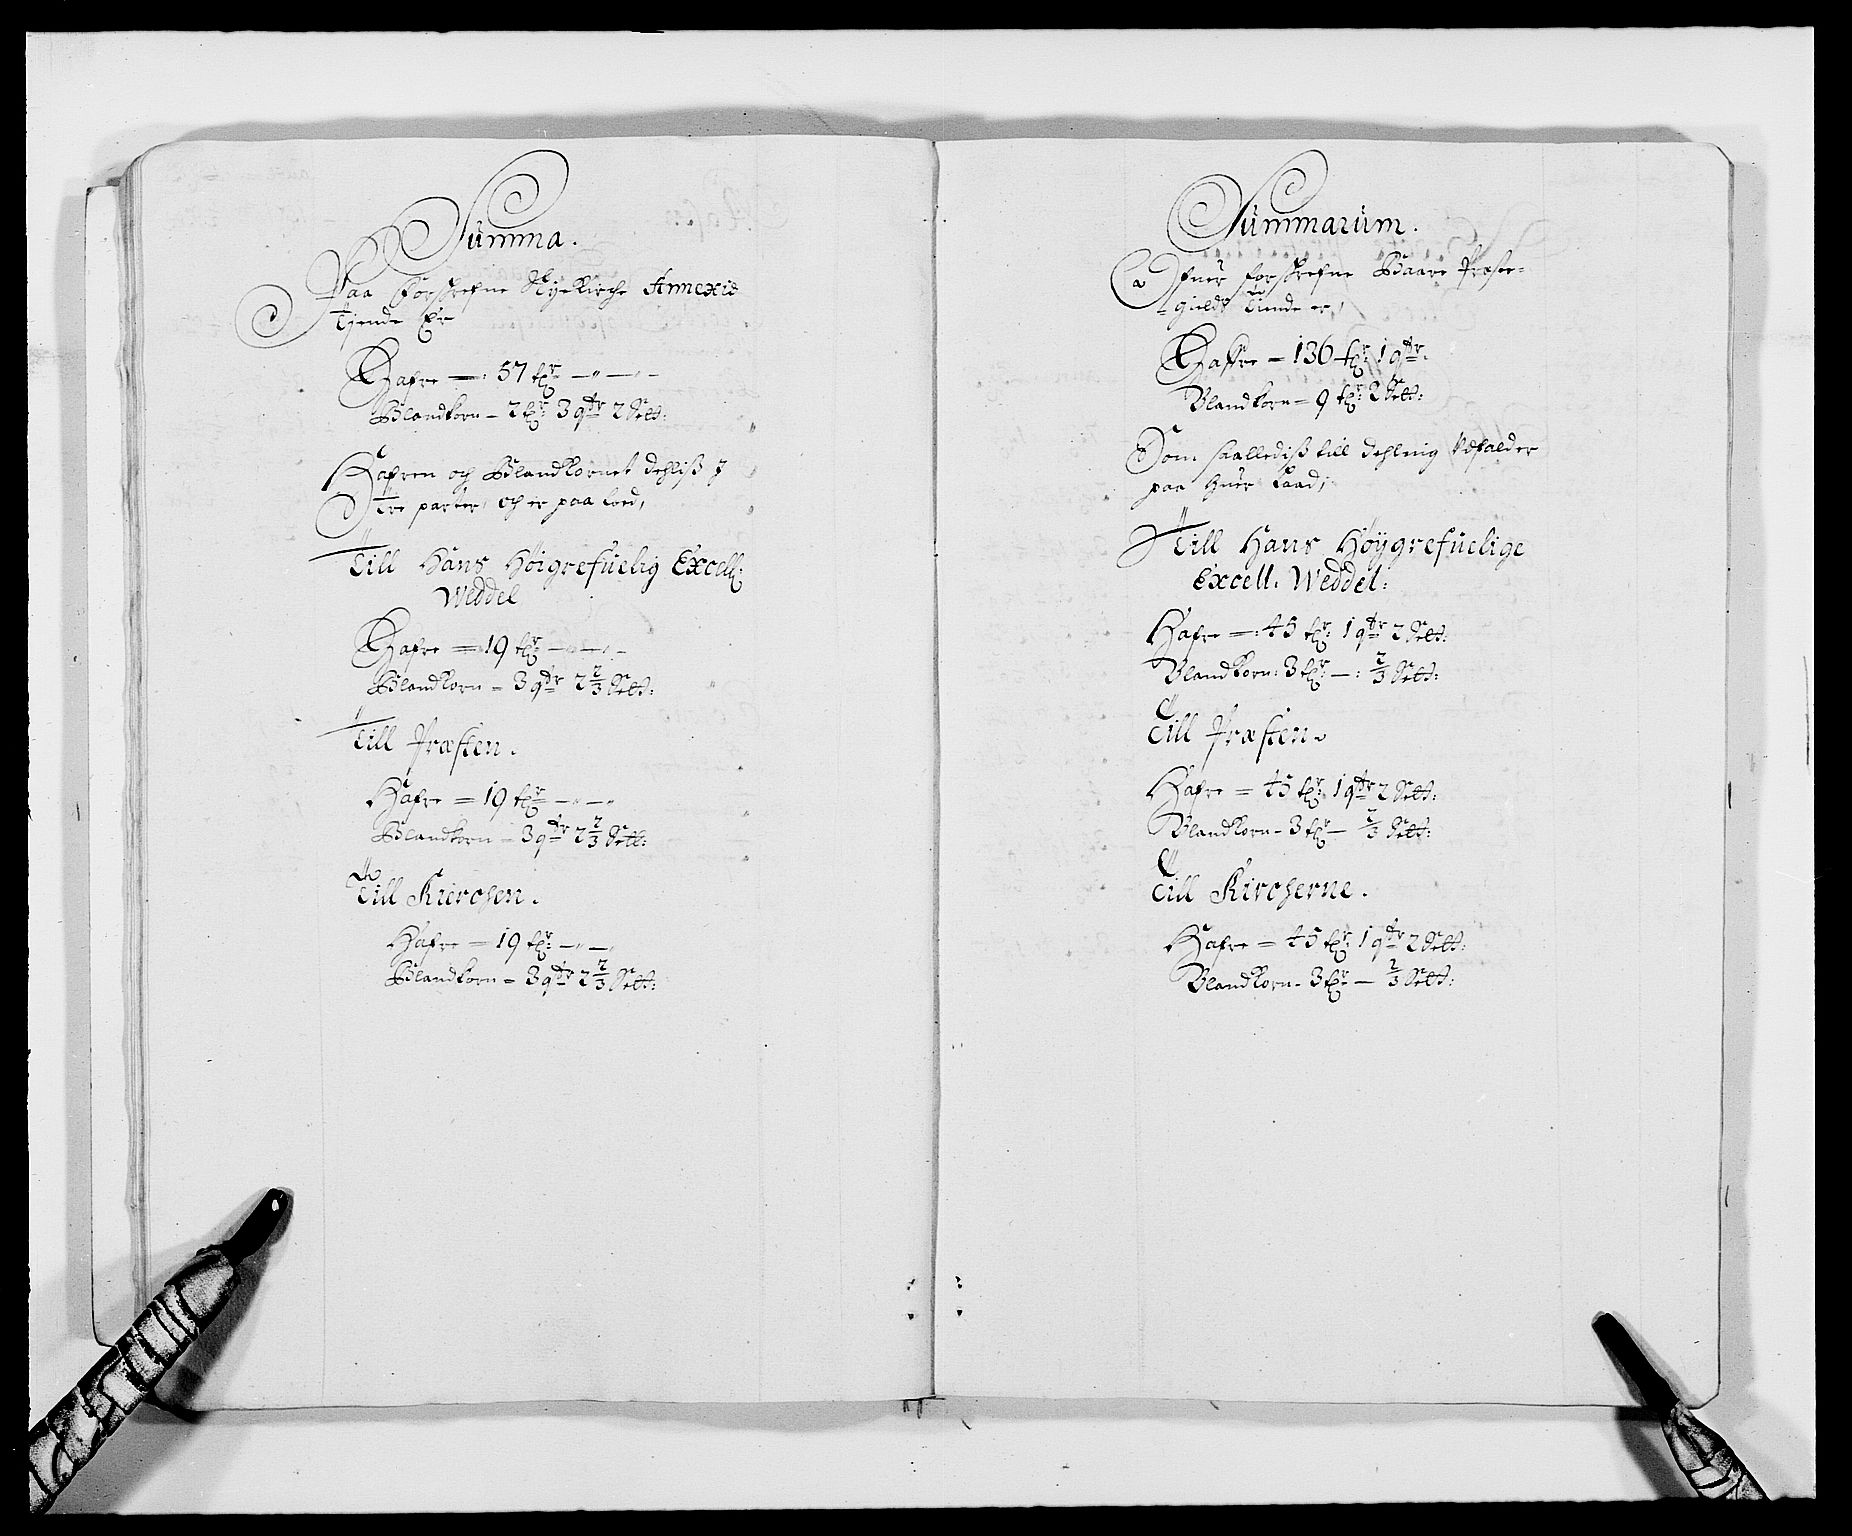 Summa.
Paa forskrefne Nyekirche Annexid
Tjende Er
Hafre — 57 tør — " — " —
Blandkorn — 2 tør: 3 qtr 2 Sett:
Hafren och Blandkornet dehliß J
Tre parter, och er paa loed,
Till Hans Høigrefuelig Excell:
Weddel
Hafre — 19 tør — " — " —
Blandkorn — 3 qtr 2 2/3 Sett:
Till Præsten.
Hafre — 19 tør — " — "
Blandkorn — 3 qtr 2 2/3 Sett:
Till Kierchen.
Hafre — 19 tør: — " — "
Blandkorn — 3 qtr 2 2/3 Sett:
Summarum.
Ofuer forskrefne Baare Præste-
gields Tiende er,
Haffre — 136 tør: 1 qtr.
Blandkorn — 9 tør: 2 Sett:
Som saalediß till dehling Udfalder
paa huer Laad,
Till Hans Høygrefuelige
Excell. Weddel:
Hafre —: 45 tør: 1 qtr 2 Sett:
Blandkorn: 3 tør: —: 2/3 Sett:
Till Præsten.
Hafre — 45 tør: 1 qtr 2 Sett:
Blandkorn — 3 tør — 2/3 Sett:
Till Kircherne.
Hafre — 45 tør: 1 qtr 2 Sett:
Blandkorn — 3 tør — 2/3 Sett: